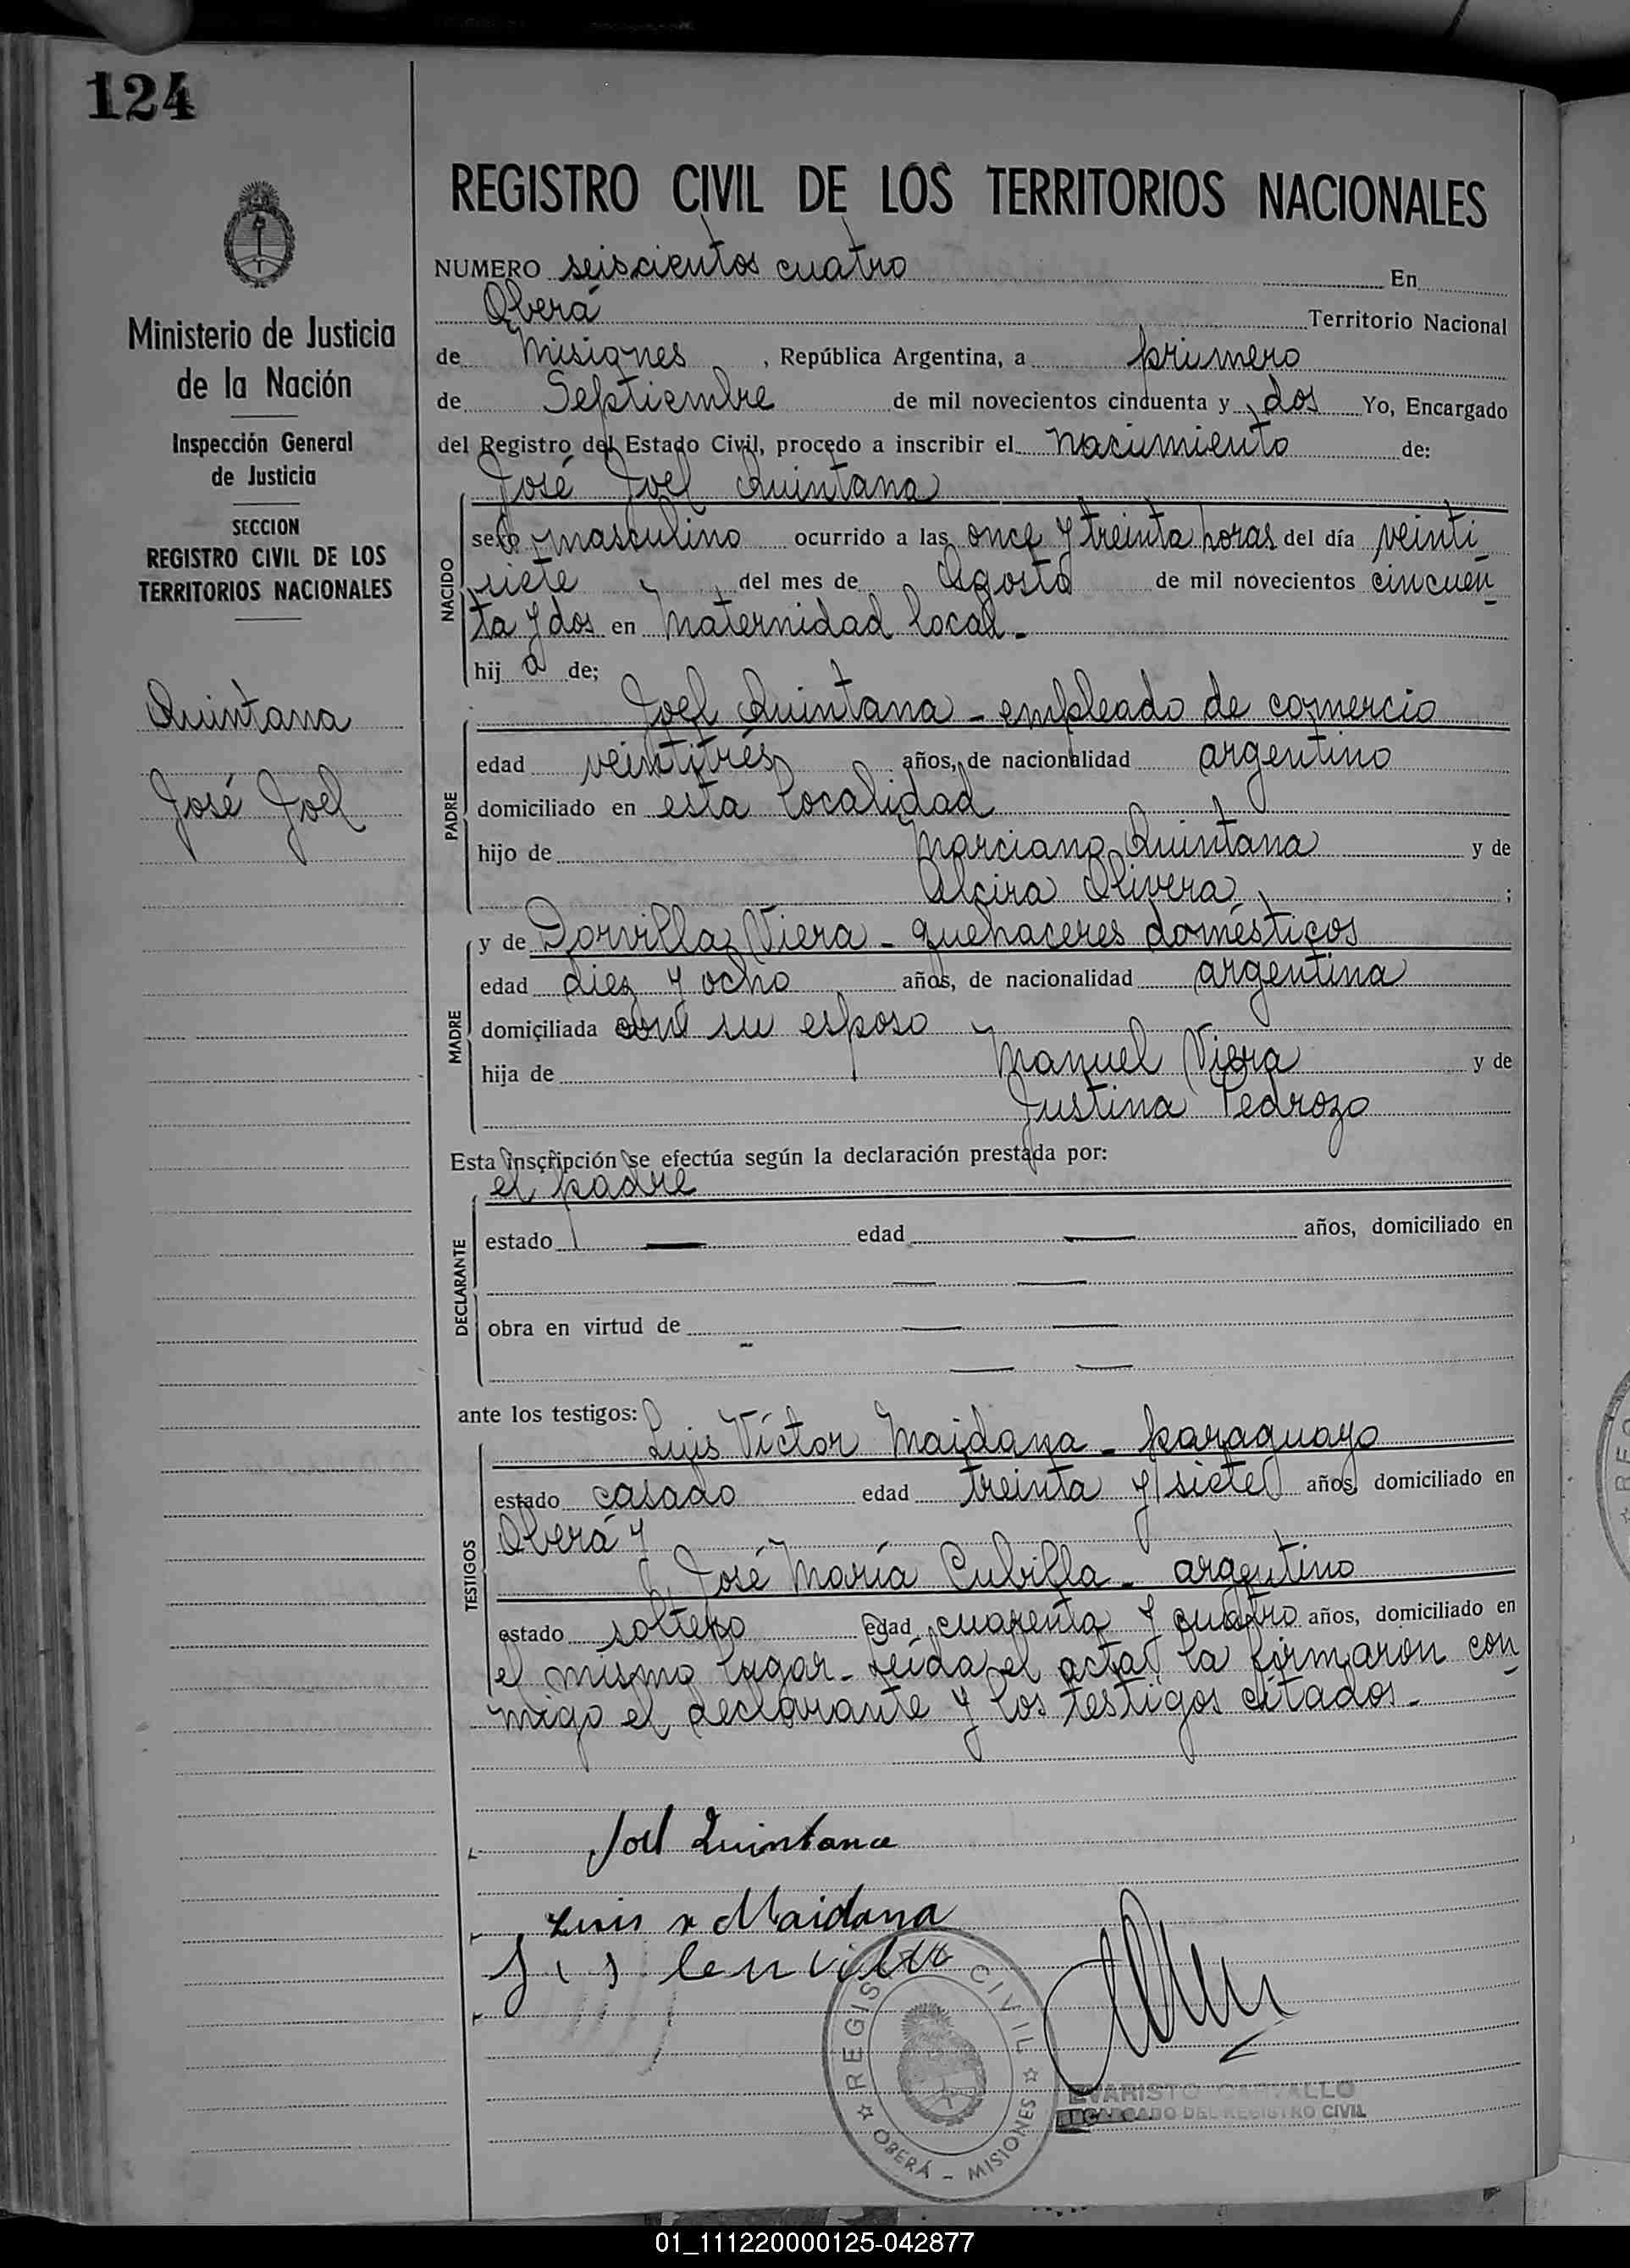 124
REGISTRO CIVIL DE LOS TERRITORIOS NACIONALES
Ministerio de Justicia
de la Nación
Inspección General
de Justicia
SECCION
REGISTRO CIVIL DE LOS
TERRITORIOS NACIONALES
Quintana
José Joel
NUMERO seiscientos cuatro En
Oberá Territorio Nacional
de Misiones, República Argentina, a primero
de Septiembre de mil novecientos cincuenta y dos Yo, Encargado
del Registro del Estado Civil, procedo a inscribir el nacimiento de:
José Joel Quintana
NACIDO
sexo masculino ocurrido a las once y treinta horas del día veinti
siete del mes de Agosto de mil novecientos cincuen
ta y dos en Maternidad local.
hij o de;
Joel Quintana - empleado de comercio
PADRE
edad veintitrés años, de nacionalidad argentino
domiciliado en esta localidad
hijo de Marciano Quintana y de
Alcira Olivera ;
y de Dorvilla Viera - quehaceres domésticos
MADRE
edad diez y ocho años, de nacionalidad argentina
domiciliada con su esposo
hija de Manuel Viera y de
Justina Pedrozo
Esta inscripción se efectúa según la declaración prestada por:
el padre
DECLARANTE
estado — edad — años, domiciliado en
— —
obra en virtud de — —
— —
ante los testigos:
Luis Víctor Maidana - paraguayo
TESTIGOS
estado casado edad treinta y siete años, domiciliado en
Oberá y
José María Cubilla - argentino
estado soltero edad cuarenta y cuatro años, domiciliado en
el mismo lugar - Leída el acta la firmaron con
migo el declarante y los testigos citados.-
Joel Quintana
Luis v Maidana
REGISTRO CIVIL
OBERÁ - MISIONES
EVARISTO CARVALLO
ENCARGADO DEL REGISTRO CIVIL
01_111220000125-042877